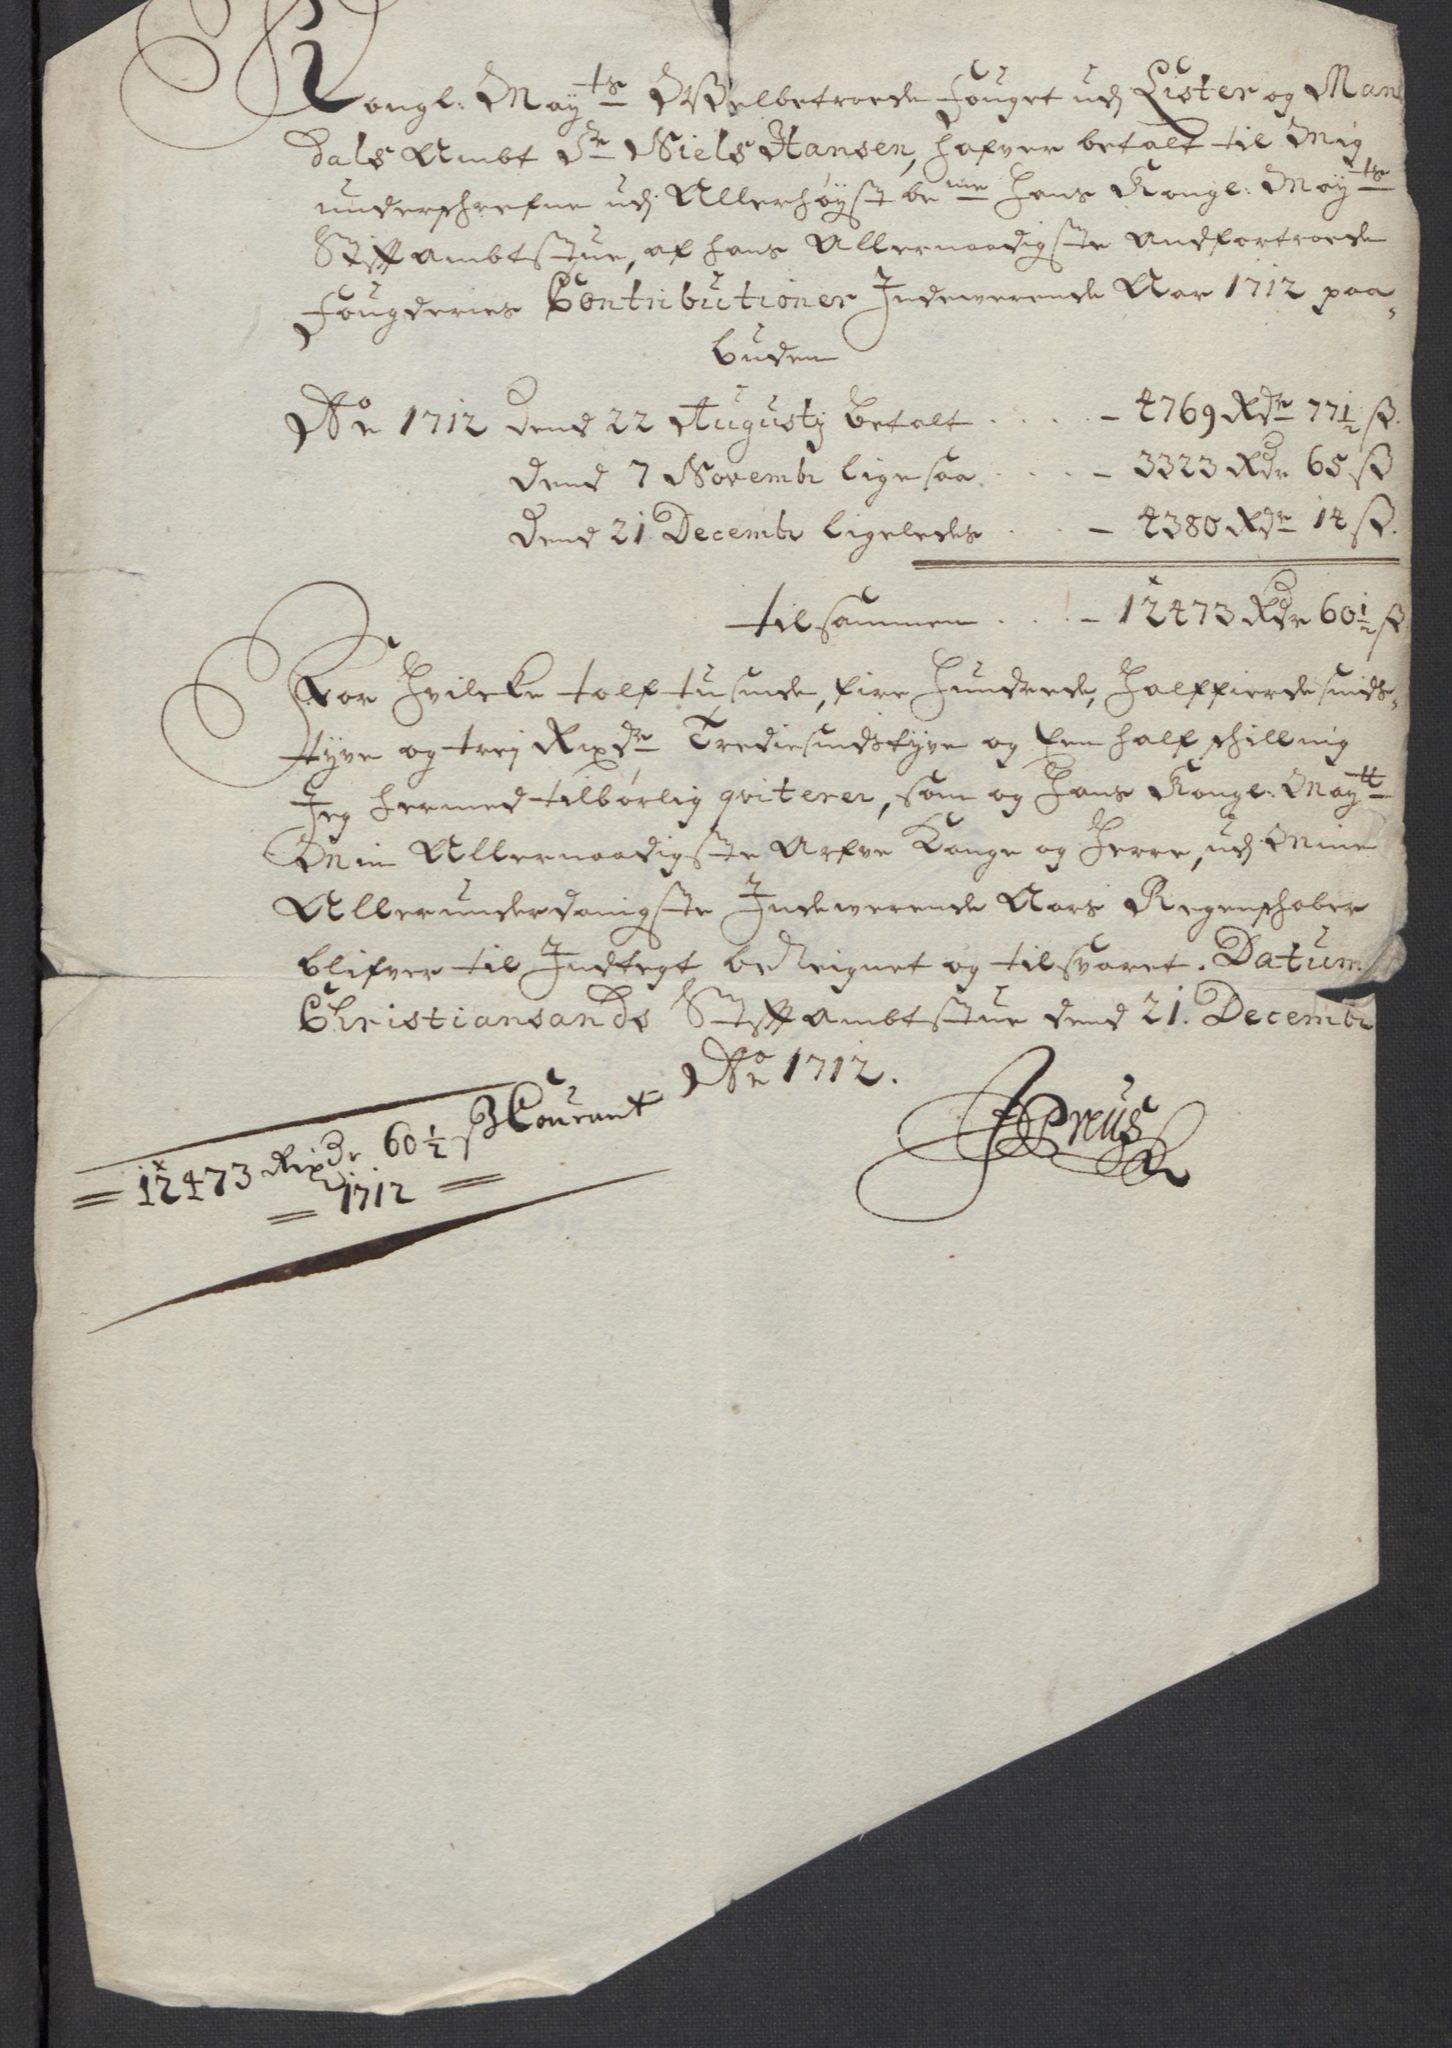 Kongl: May^ts Welbetroede Fouget udj Lister og Man
dals Ambt Sr Niels Hansen, hafver betalt til Mig
underschrefne udj Allerhøyst be^me Hans Kongl: May^ts
Stiffambtstue, af hans Allernaadigste Andfortroede
Fougderies Contributioner Indewerende Aar 1712 paa-
buden
Ao 1712 Dend 22 Augustj betalt . . . . - 4769 Rdr 77½ ß.
Dend 7 Novembr ligesaa . . . - 3323 Rdr 65 ß
Dend 21 Decembr ligeledes . . - 4380 Rdr 14 ß.
tilsammen . . . - 12473 Rdr 60½ ß
For Hvilcke tolf tusinde, fire Hundrede, Halffierdesinds-
tyve og trej Rixdr Trediesindstyve og Een half schilling
Jeg hermed tilbørlig qviterer, som og Hans Kongl: May^tt
Min Allernaadigste Arfve Konge og Herre, udj Mine
Allerunderdanigste Indewerende Aars Regenschaber
blifver til Indtegt beReignet og tilsvaret. Datum
Christiansands Stiffambtstue dend 21. Decembr
Ao 1712.
JPreus
= 12473 Rixdr 60½ ß Courant
= 1712 =